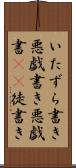 いたずら書き
悪戯書き悪戯
書徒書き